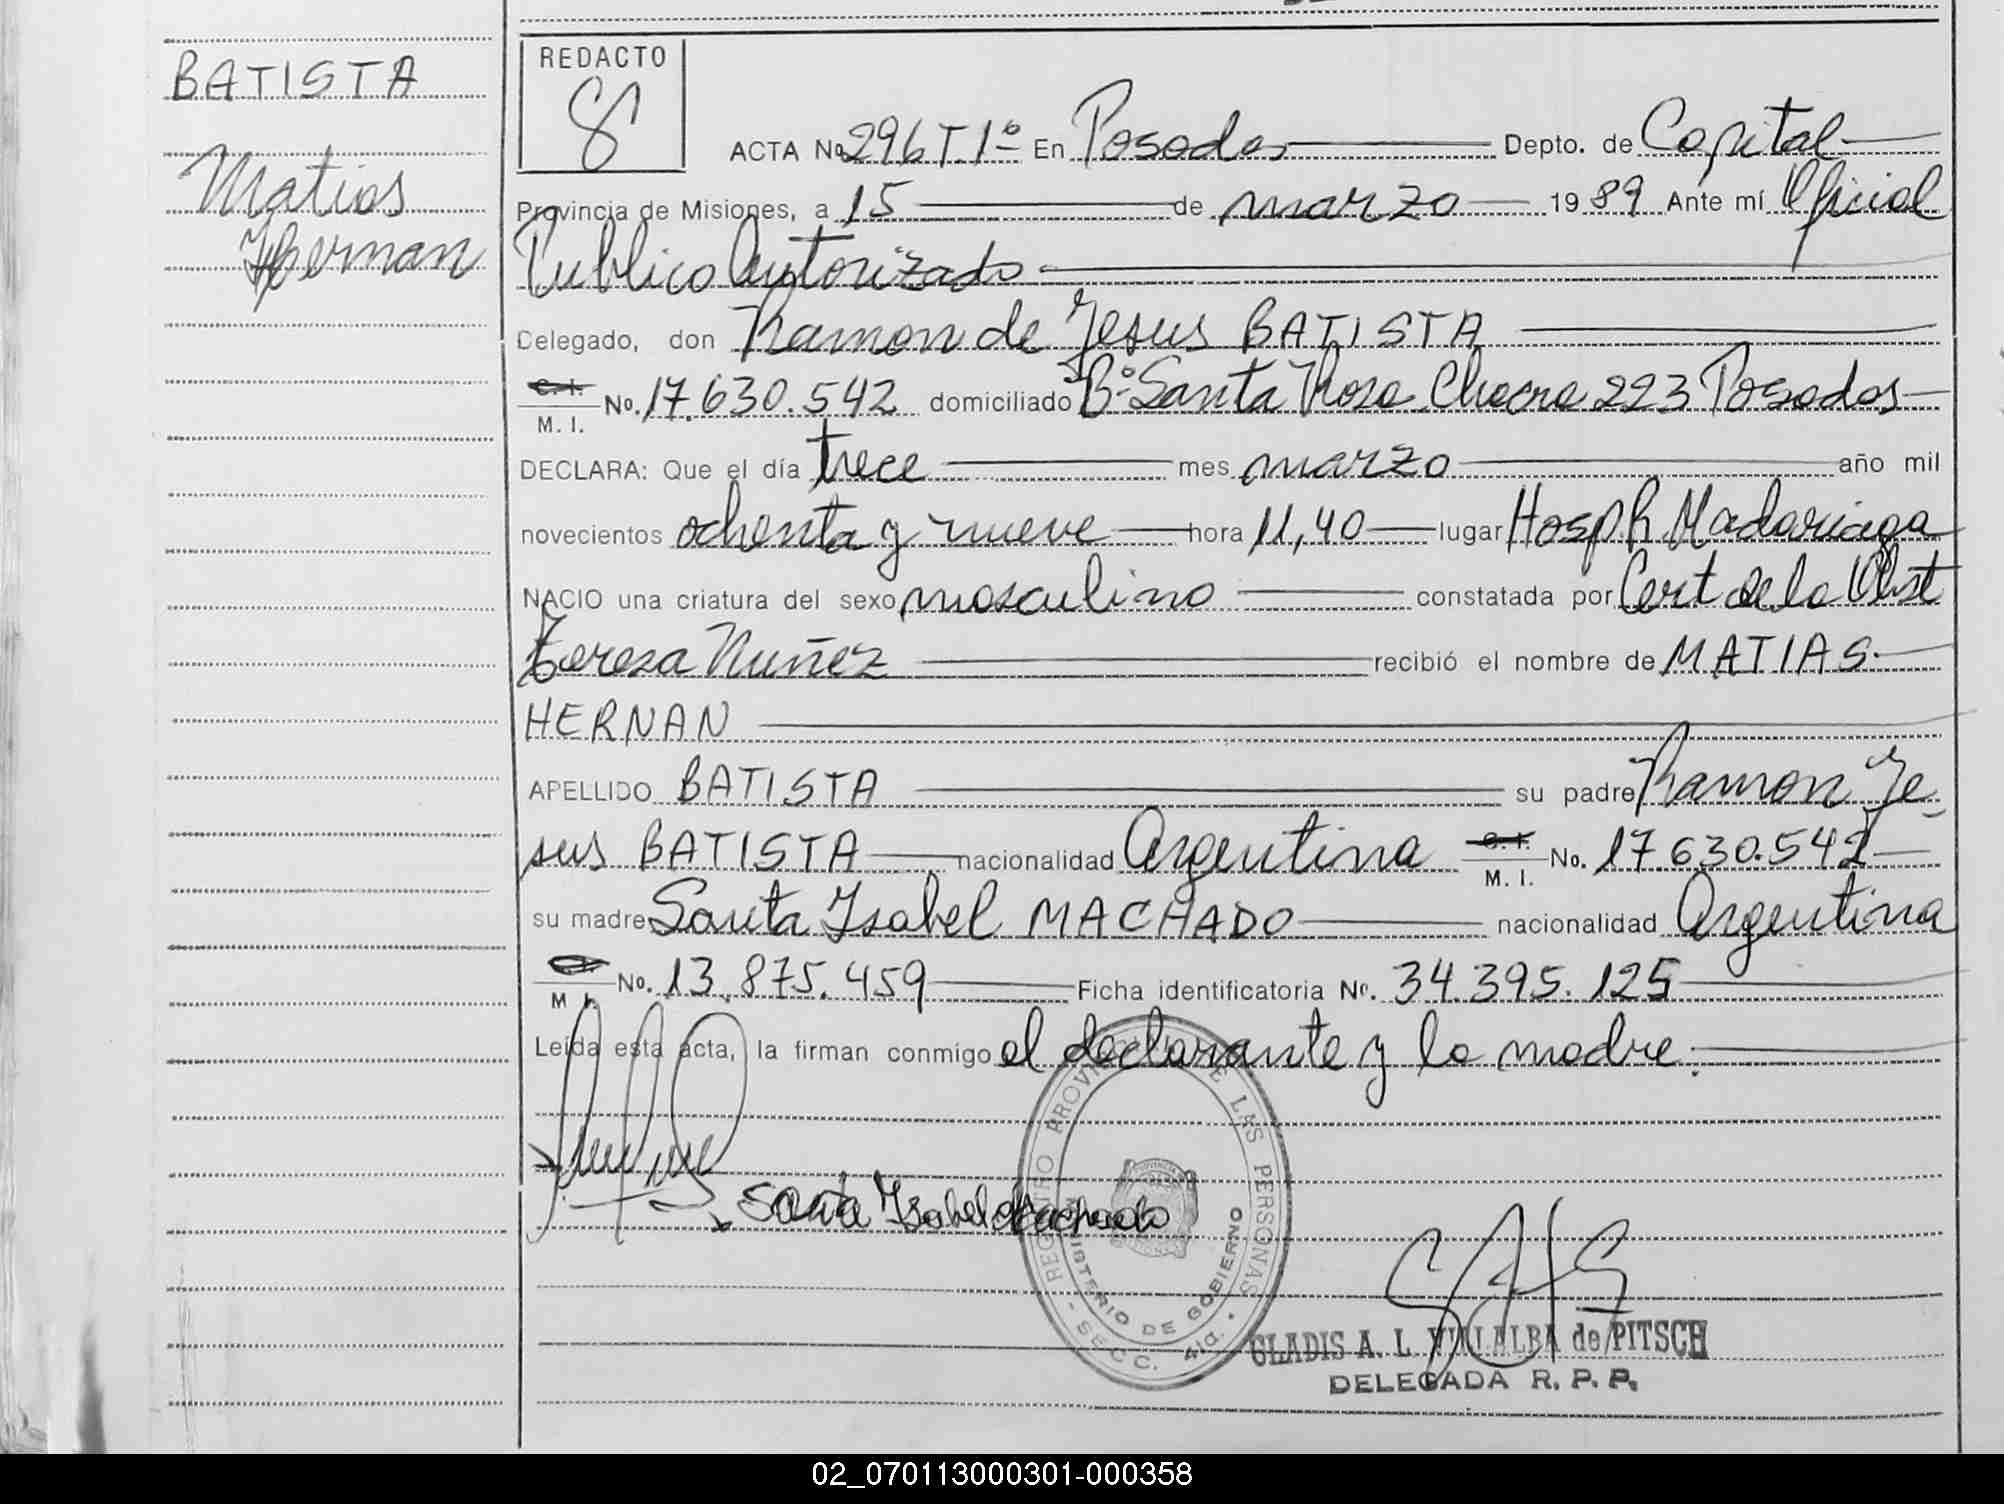 BATISTA
Matias
Hernan
REDACTO
ACTA No 296 T. 1º En Posadas Depto. de Capital
Provincia de Misiones, a 15 de marzo 1989 Ante mí Oficial
Publico Autorizado
Delegado, don Ramon de Jesus BATISTA
C. I.
M. I. No. 17.630.542 domiciliado Bº Santa Rosa Chacra 223 Posadas
DECLARA: Que el día trece mes marzo año mil
novecientos ochenta y nueve hora 11,40 lugar Hosp R Madariaga
NACIO una criatura del sexo masculino constatada por Cert de la Obst
Teresa Nuñez recibió el nombre de MATIAS
HERNAN
APELLIDO BATISTA su padre Ramon Je-
sus BATISTA nacionalidad Argentina C. I. M. I. No. 17.630.542
su madre Santa Isabel MACHADO nacionalidad Argentina
M. I. No. 13.875.459 Ficha identificatoria No. 34.395.125
Leída esta acta, la firman conmigo el declarante y la madre.
Santa Isabel Machado
REGISTRO PROVINCIAL DE LAS PERSONAS
MINISTERIO DE GOBIERNO
SECC. 4ta.
GLADIS A. L. VILLALBA de PITSCH
DELEGADA R. P. P.
02_070113000301-000358